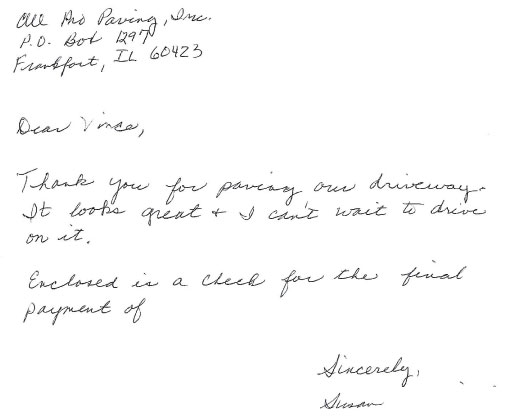 All Pro Paving, Inc.
P.O. Box 1297
Frankfort, IL 60423
Dear Vince,
Thank you for paving our driveway.
It looks great + I can't wait to drive
on it.
Enclosed is a check for the final
payment of
Sincerely,
Susan